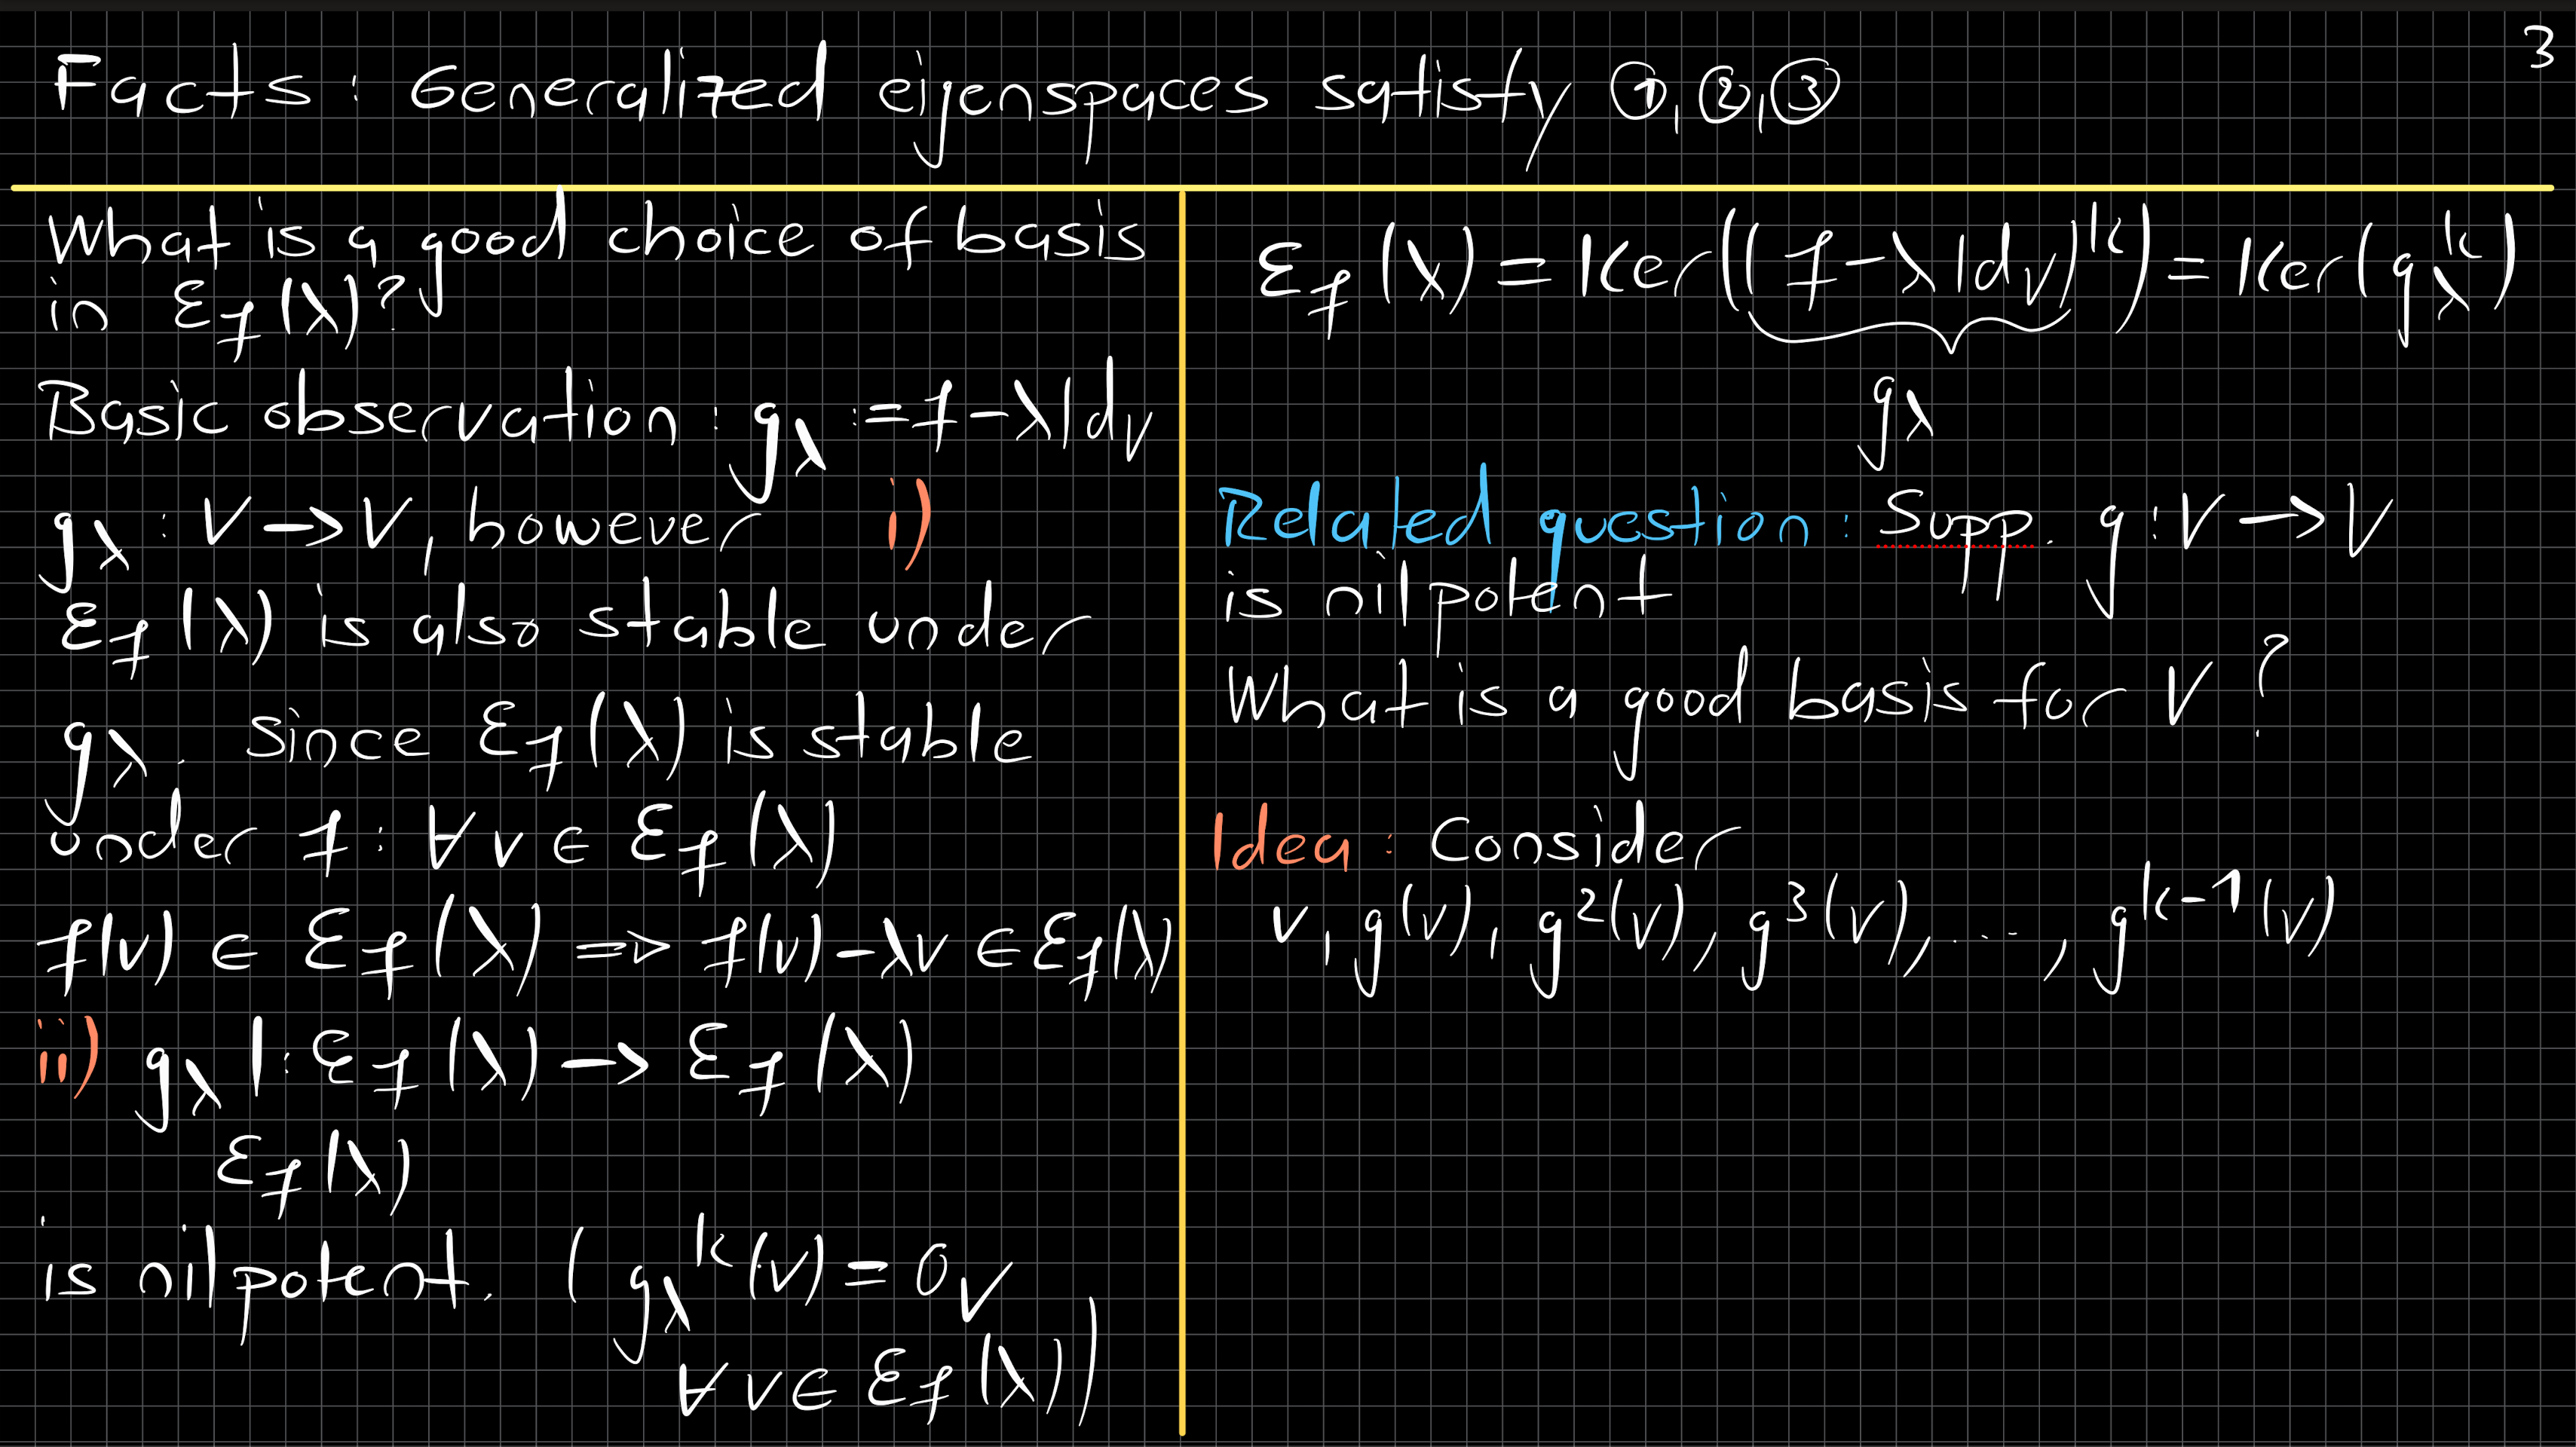 3
Facts: Generalized eigenspaces satisfy ①, ②, ③
What is a good choice of basis
in Ɛ_f(λ)?
Basic observation: g_λ := f - λId_V
g_λ: V → V, however i)
Ɛ_f(λ) is also stable under
g_λ. Since Ɛ_f(λ) is stable
under f: ∀ v ∈ Ɛ_f(λ)
f(v) ∈ Ɛ_f(λ) => f(v) - λv ∈ Ɛ_f(λ)
ii) g_λ|: Ɛ_f(λ) → Ɛ_f(λ)
Ɛ_f(λ)
is nilpotent. (g_λ^k(v) = 0_V
∀ v ∈ Ɛ_f(λ))
Ɛ_f(λ) = Ker((f - λId_V)^k) = Ker(g_λ^k)
g_λ
Related question: Supp. g: V → V
is nilpotent
What is a good basis for V?
Idea: Consider
v, g(v), g²(v), g³(v), ..., g^{k-1}(v)